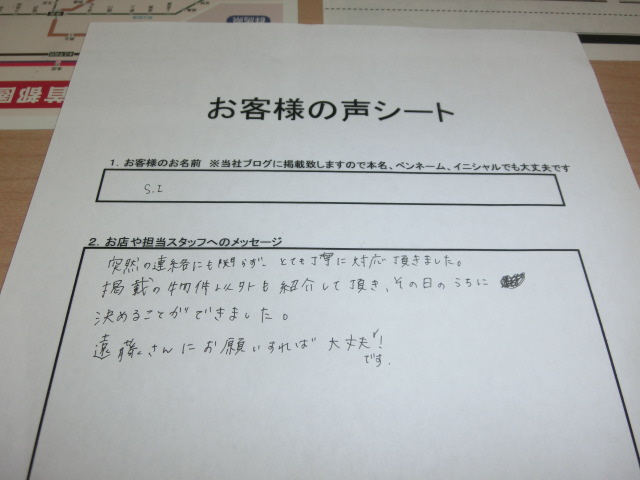 首都圏
お客様の声シート
1. お客様のお名前 ※当社ブログに掲載致しますので本名、ペンネーム、イニシャルでも大丈夫です
S.I
2. お店や担当スタッフへのメッセージ
突然の連絡にも関らず、とても丁寧に対応頂きました。
掲載の物件以外も紹介して頂き、その日のうちに
決めることができました。
遠藤さんにお願いすれば大丈夫!
です.